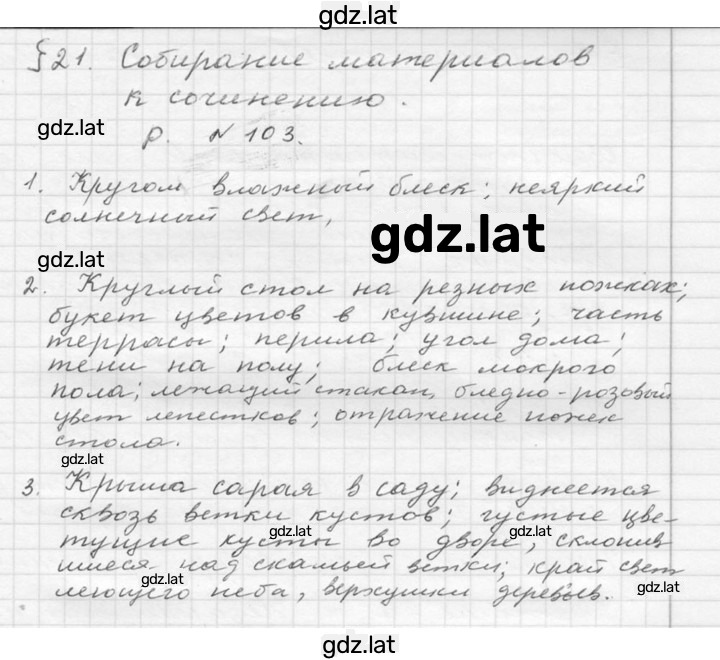 gdz.lat
§21. Собирание материалов
к сочинению.
gdz.lat
р. N 103.
1. Кругом влажный блеск; неяркий
солнечный свет,
gdz.lat
gdz.lat
2. Круглый стол на резных ножках;
букет цветов в кувшине; часть
террасы; перила; угол дома;
тени на полу; блеск мокрого
пола; лежащий стакан, бледно-розовый
цвет лепестков; отражение ножек
стола.
gdz.lat
3. Крыша сарая в саду; виднеется
сквозь ветки кустов; густые цве-
gdz.lat
gdz.lat
тущие кусты во дворе, склонив
шиеся над скамьей ветки; край свет
gdz.lat
gdz.lat
леющего неба, верхушки деревьев.
gdz.lat